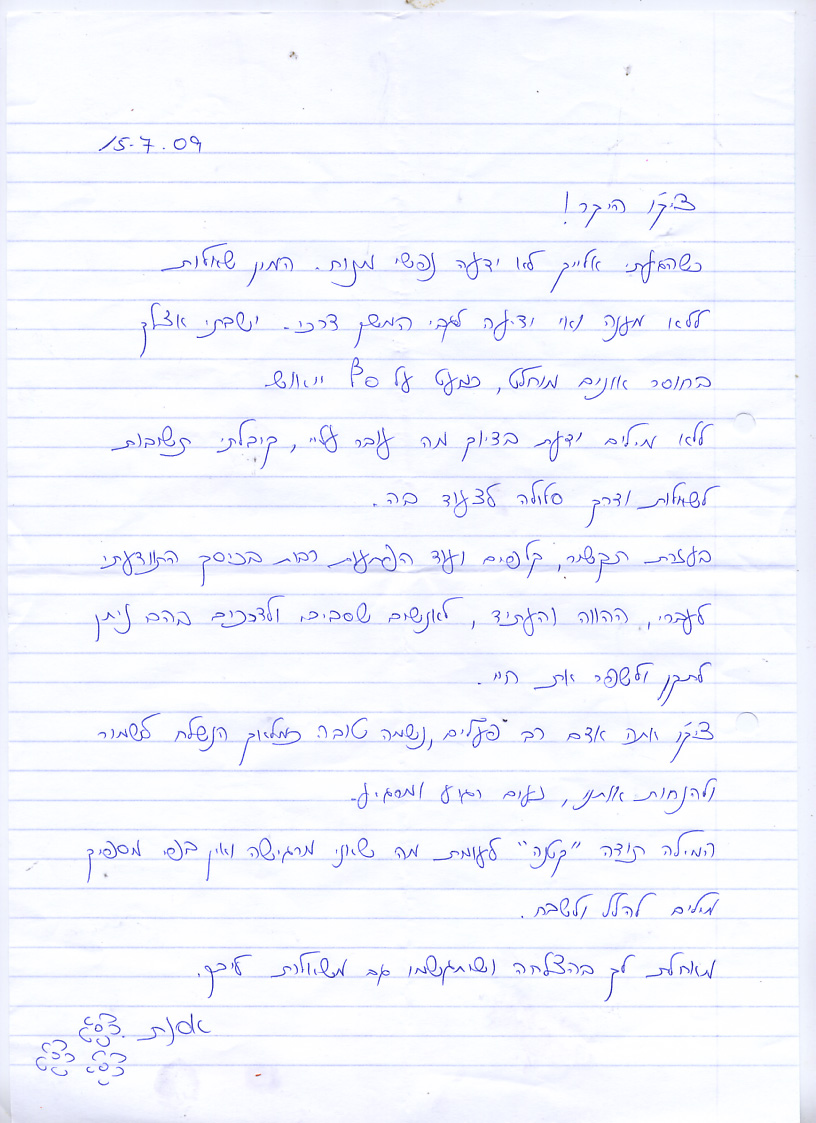 15.7.09
ציקו היקר!
כשהגעתי אלייך לא ידעה נפשי מנוח. המון שאלות
ללא מענה ואי ידיעה לגבי המשך דרכי. ישבתי אצלך
בחוסר אונים מוחלט, כמעט על סף ייאוש
ללא מילים ידעת בדיוק מה עובר עליי, קיבלתי תשובות
לשאלות ודרך סלולה לצעוד בה.
בעזרת תקשור, קלפים ועוד הפתעות רבות בכיסך התוודעתי
לעברי, ההווה והעתיד, לאנשים שסביבי ולדרכים בהם ניתן
לתקן ולשפר את חיי.
ציקו אתה אדם רב פעלים, נשמה טובה כמלאך הנשלח לשמור
ולהנחות אותנו, נעים רגוע ומרגיע.
המילה תודה "קטנה" לעומת מה שאני מרגישה ואין בפי מספיק
מילים להלל ולשבח.
מאחלת לך בהצלחה ושיתגשמו גם משאלות ליבך.
אסנת.